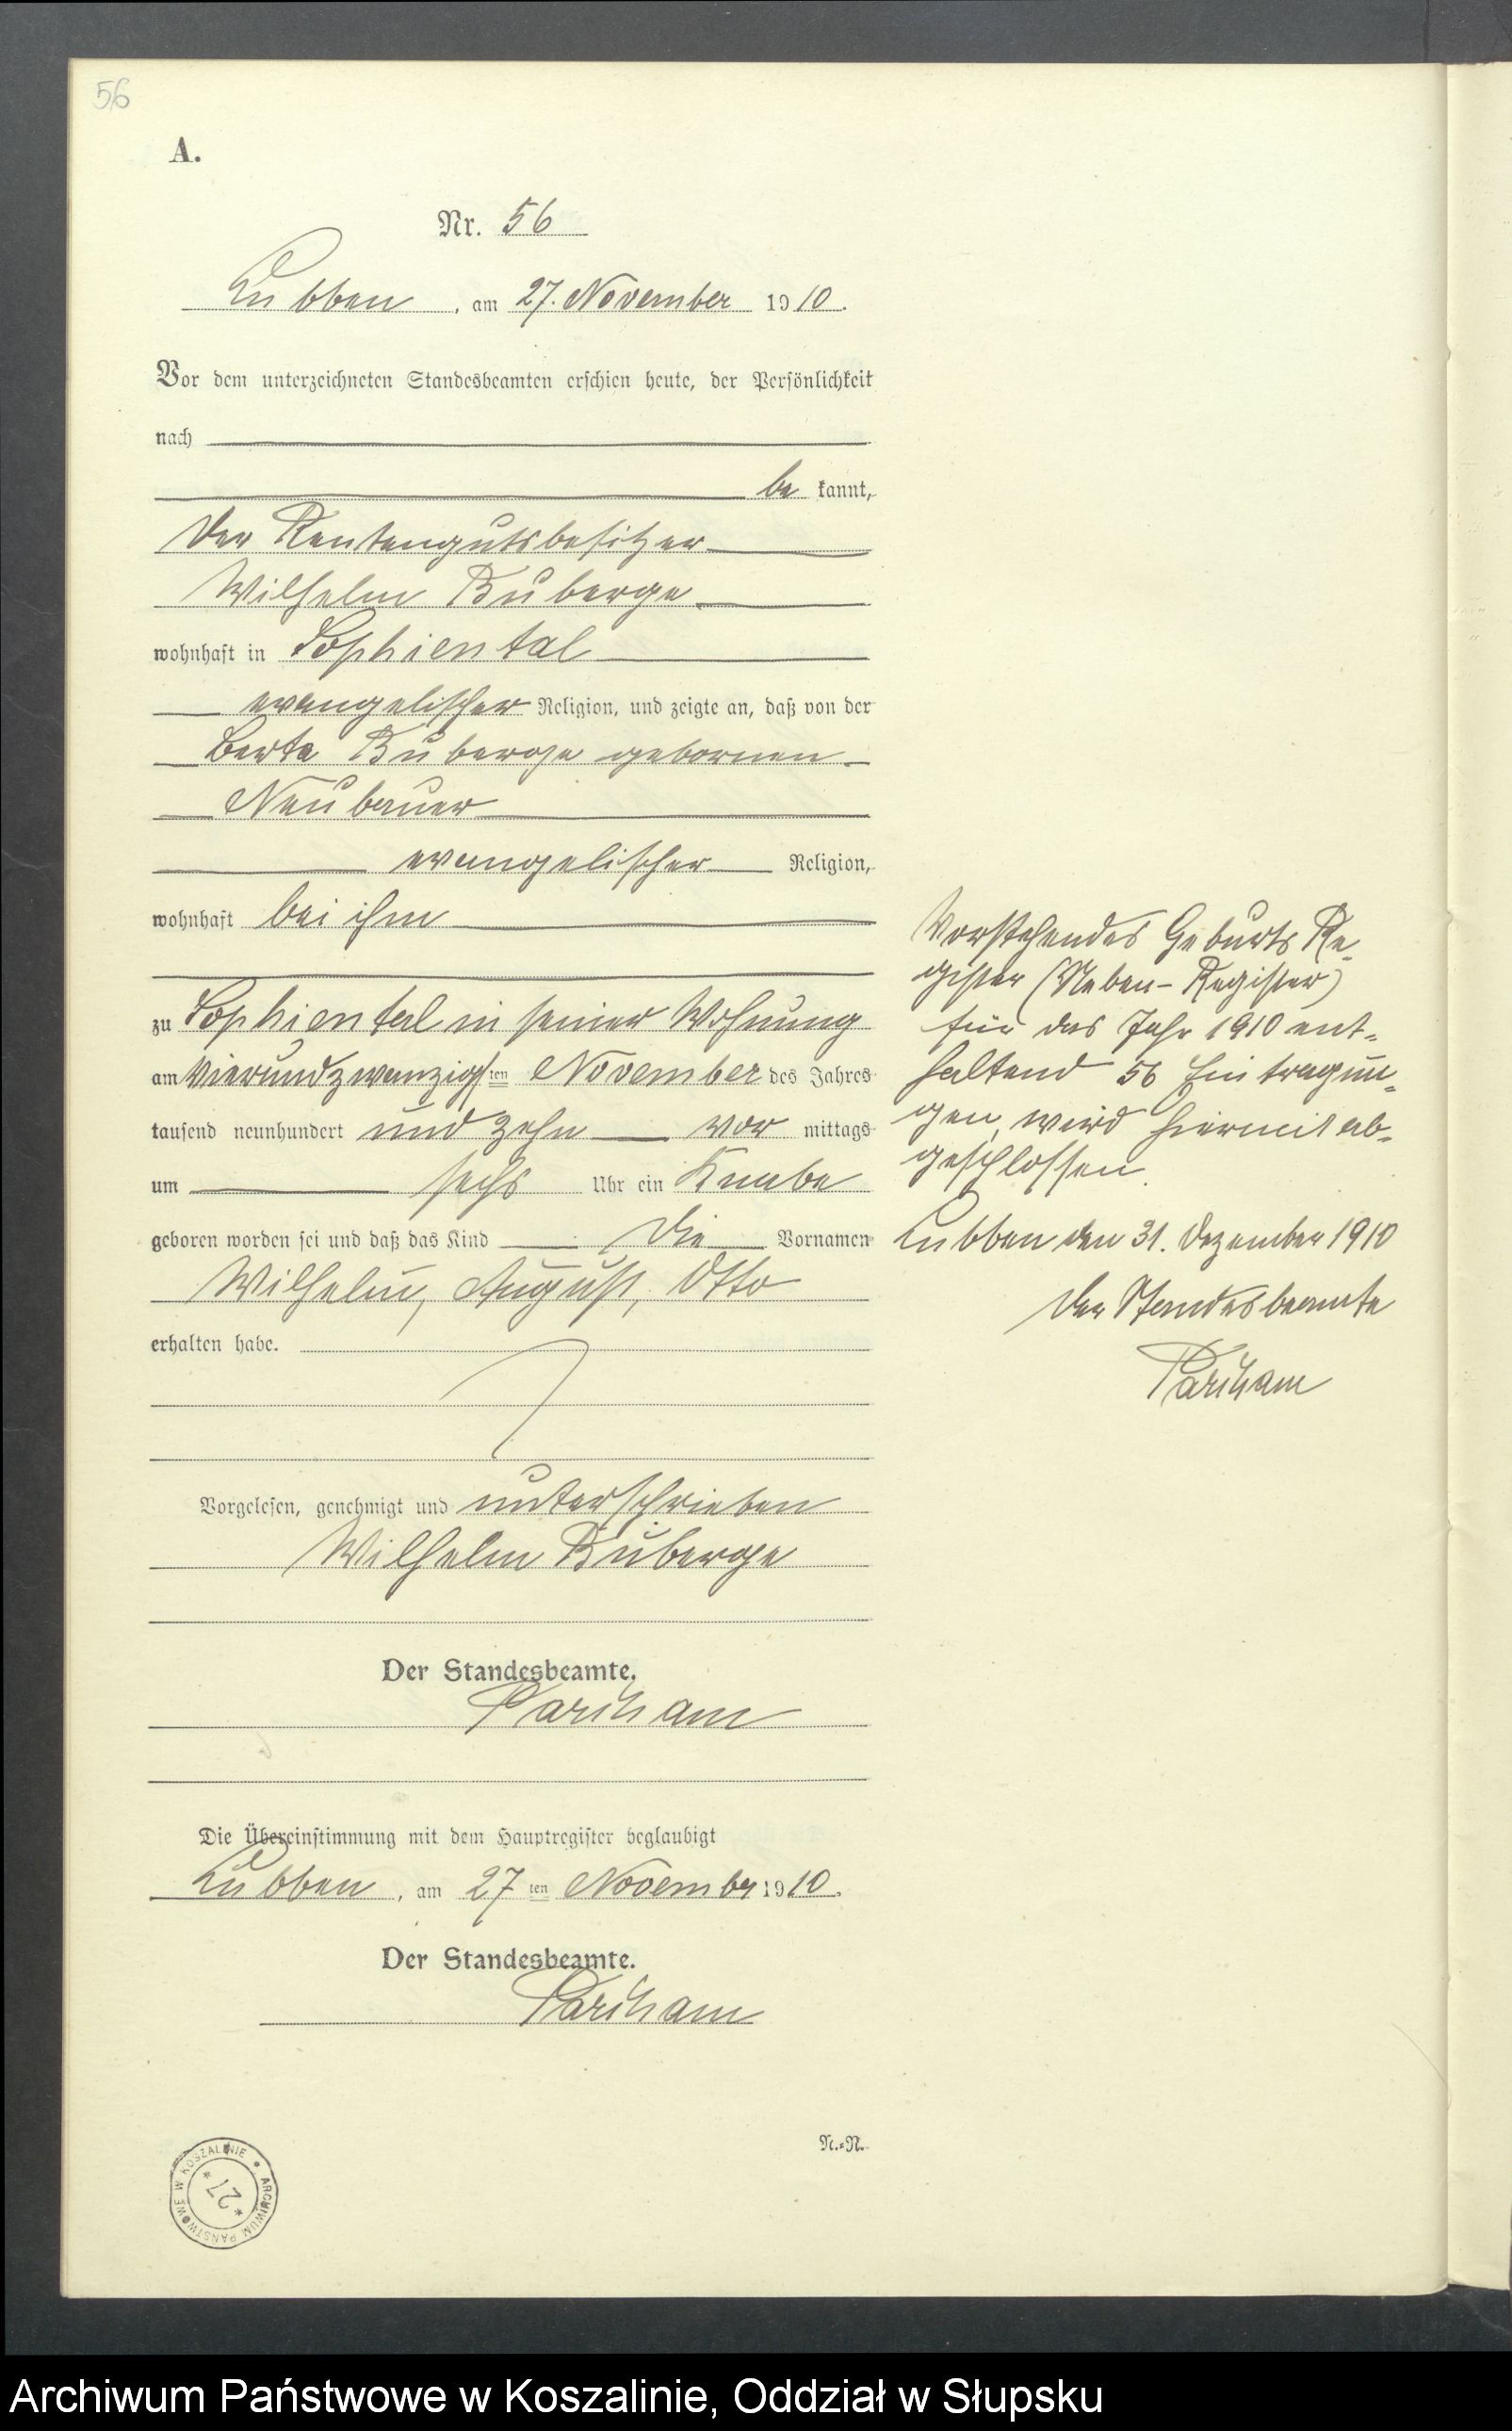 56
A.
Nr. 56
Lubben, am 27. November 1910.
Vor dem unterzeichneten Standesbeamten erschien heute, der Persönlichkeit
nach
bekannt,
der Rentengutsbesitzer
Wilhelm Buberge
wohnhaft in Sophiental
evangelischer Religion, und zeigte an, daß von der
Berta Buberge gebornen
Neubauer
evangelischer Religion,
wohnhaft bei ihm
zu Sophiental in seiner Wohnung
am vierundzwanzigsten November des Jahres
tausend neunhundert und zehn vor mittags
um sechs Uhr ein Knabe
geboren worden sei und daß das Kind die Vornamen
Wilhelm, August, Otto
erhalten habe.
Vorgelesen, genehmigt und unterschrieben
Wilhelm Buberge
Der Standesbeamte.
Die Übereinstimmung mit dem Hauptregister beglaubigt
Lubben, am 27ten November 1910.
Der Standesbeamte.
N.=R.
Vorstehendes Geburts Re-
gister (Neben-Register)
für das Jahr 1910 ent-
haltend 56 Eintragun-
gen, wird hiermit ab-
geschlossen.
Lubben den 31. Dezember 1910
Der Standesbeamte
ARCHIWUM PAŃSTWOWE W KOSZALINIE
* 27 *
Archiwum Państwowe w Koszalinie, Oddział w Słupsku